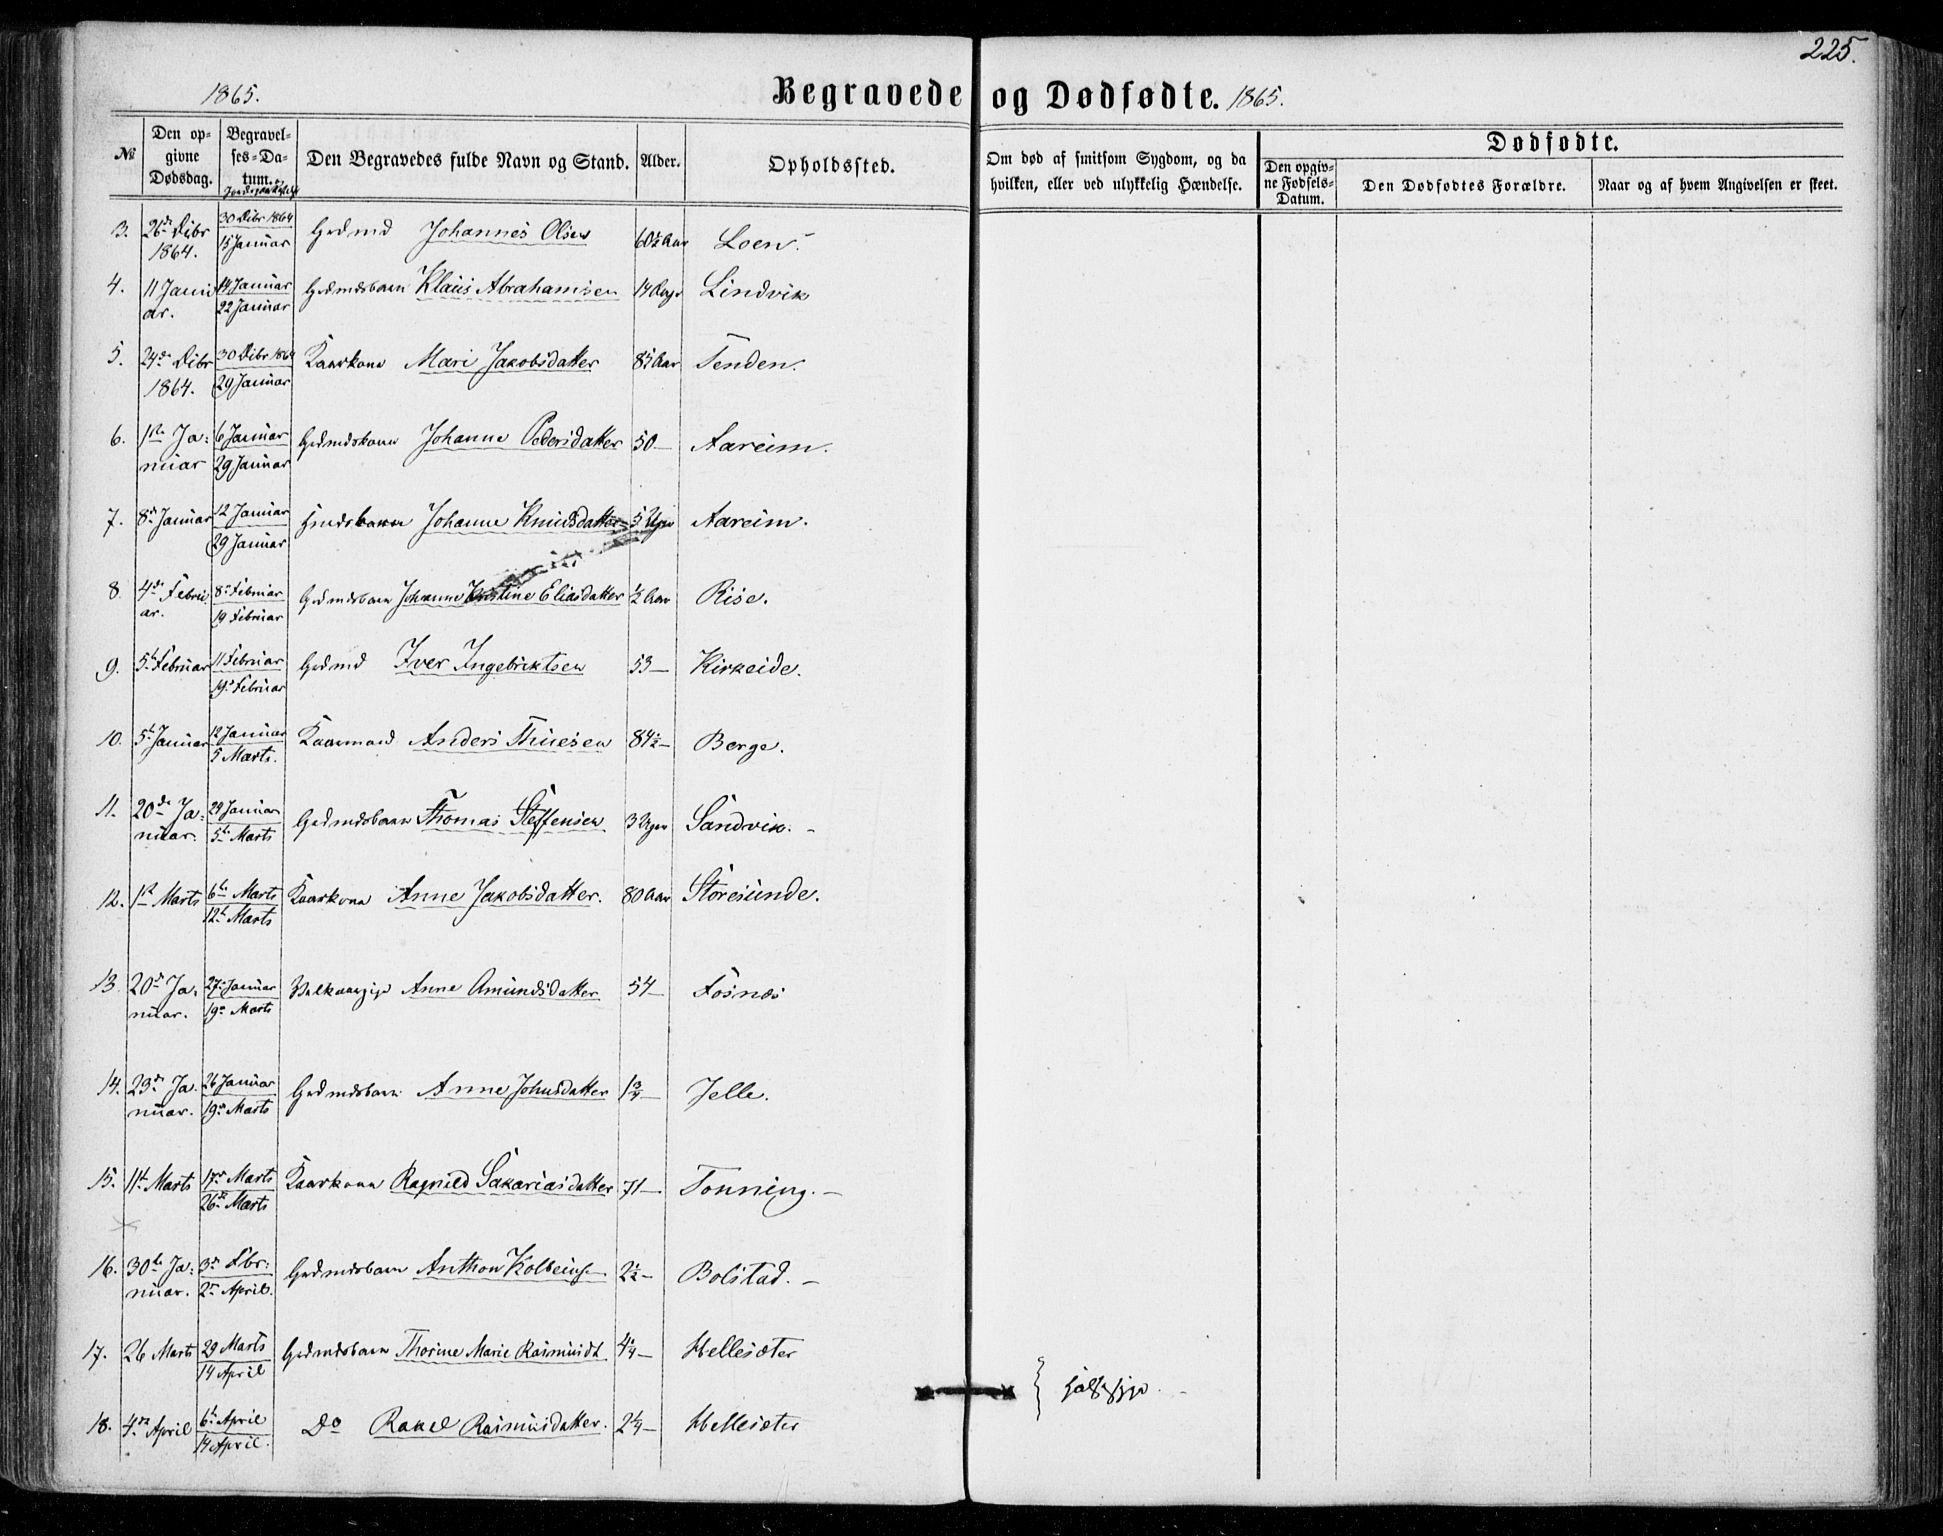 225.
1865. Begravede og Dødfødte. 1865.
№ Den opgivne Dødsdag. Begravelses-Datum. Den Begravedes fulde Navn og Stand. Alder. Opholdssted. Om død af smitsom Sygdom, og da hvilken, eller ved ulykkelig Hændelse. Dødfødte. Den opgivne Fødsels-Datum. Den Dødfødtes Forældre. Naar og af hvem Angivelsen er skeet.
3. 26de Dibr 1864. 30 Dibr 1864 15 Januar Gdmd Johannes Olsen 60½ Aar Loen.
4. 11 Januar. 14 Januar 22 Januar Gdmdsbarn Klaus Abrahamsen 14 Dage Lindvik
5. 24de Dibr 1864. 30 Dibr 1864 29 Januar Kaarkone Mari Jakobsdatter 85 Aar Tenden.
6. 1ste Januar 6 Januar 29 Januar Gdmdskone Johanne Pedersdatter 50 — Aareim.
7. 8de Januar 12 Januar 29 Januar Johanne Knudsdatter 5 Uger Aareim.
8. 4de Februar. 8de Februar 19 Februar Gdmdsbarn Johanne Kristine Eliasdatter ½ Aar Rise.
9. 5te Februar 11 Februar 19de Februar Gdmd Iver Ingebriktsen 53 — Kirkeide.
10. 5te Januar 12 Januar 5 Marts. Kaarmand Anders Thuesen 84½ — Berge.
11. 20de Januar. 24 Januar 5te Marts Gdmdsbarn Thomas Steffensen 3 Uger Sandvik. —
12. 1ste Marts 6te Marts 12te Marts Kaarkone Anne Jakobsdatter. 80 Aar Storesunde.
13. 20de Januar. 27de Januar 19de Marts Anne Amundsdatter 54 — Fosnæs
14. 23de Januar. 26 Januar 19de Marts Gdmdsbarn Anne Johnsdatter 1¾ — Jelle.
15. 11te Marts 17de Marts 26de Marts Kaarkone Ragnild Sakariasdatter 71 — Tonning. —
16. 30te Januar. 3de Fbr: 2den April. Gdmdsbarn Anthon Kolbeins. 2½ — Bolstad. —
17. 26 Marts 29 Marts 14 April Gdmdsbarn Thorine Marie Rasmusdt. 4¼ — Hellesæter
18. 4de April 6te April 14 April. Do Rakel Rasmusdatter. 2¼ — Hellesæter